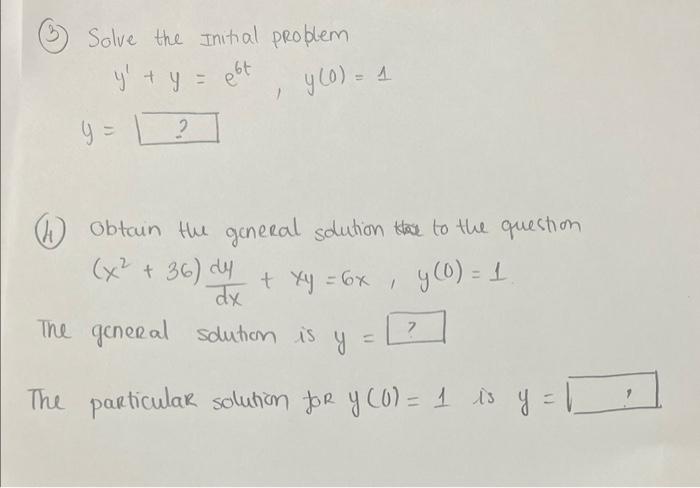 ③ Solve the Initial problem
y' + y = e^{6t} , y(0) = 1
y = ?
④ Obtain the general solution to the question
(x² + 36) dy/dx + xy = 6x , y(0) = 1.
The general solution is y = ?
The particular solution for y(0) = 1 is y = ?